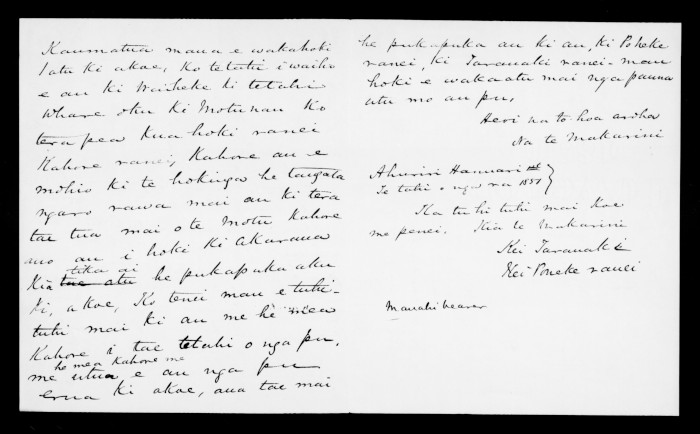 Kaumatua mana e wakahoki
/atu ki akoe, Ko tetuhi i waiho
e au ki Waiheke ki tetahi
whare oku ki Motunau Ko
tera pea kua hoki ranei
Kahore ranei, Kahore au e
mohio ki te hokinga he tangata
ngaro rawa mai au ki tera
tae tua mai o te Motu Kahore
ano au i hoki ki Akarana
tika ai
Kia tae atu he pukapuka aku
ki, akoe, Ko tenei mau e tuhi-
tuhi mai ki au me he mea
Kahore i tae tetahi o nga pu,
he mea Kahore me
me utua e au nga pu
erua ki akoe, aua tae mai
he pukapuka au ki au, ki Poneke
ranei, ki Taranaki ranei - mau
hoki e wakaatu mai nga pauna
utu mo au pu,
Heoi na to hoa aroha
Na te Makarini
Ahuriri Hannuari
Te tahi o nga ra 1851
Ka tuhi tuhi mai koe
me penei. Kia te Makarini
Kei Taranaki
Kei Poneke ranei
Manahi bearer